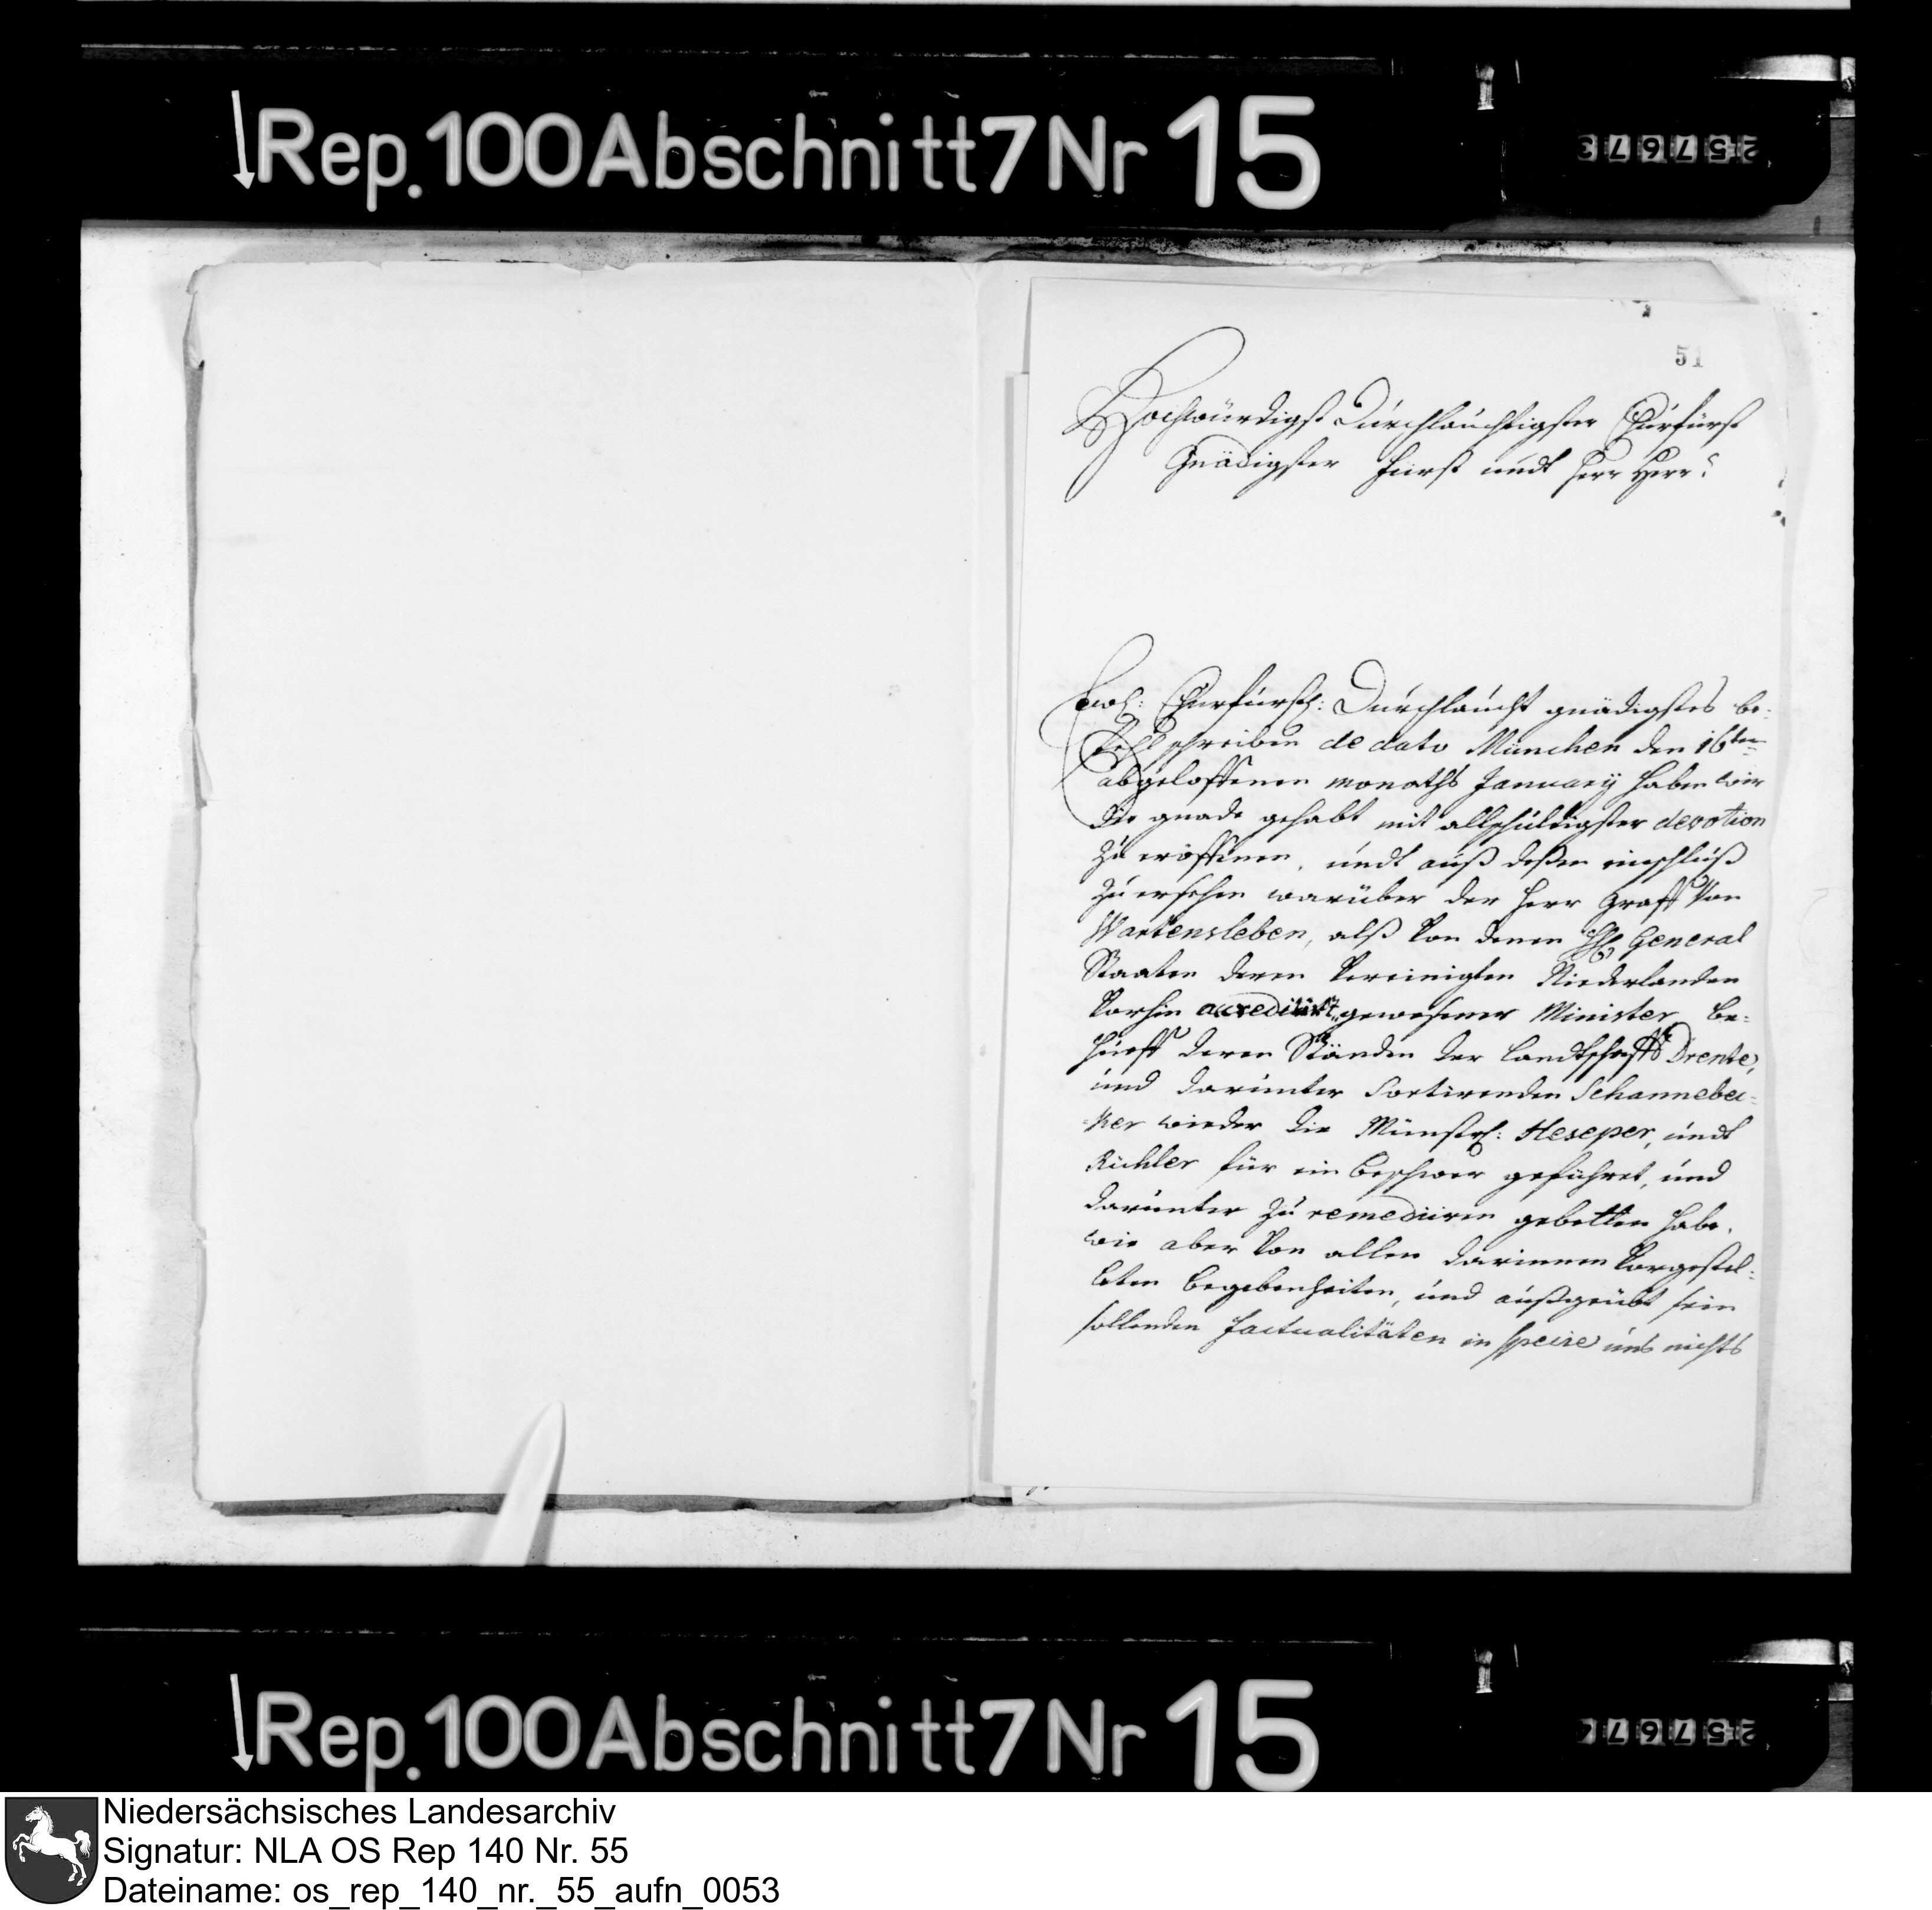 Rep. 100 Abschnitt 7 Nr 15
257673
51
Hochwürdigst Durchläuchtigster Churfürst
Gnädigster Fürst undt Herr Herr
Ew: Churfürstl: Durchläucht gnädigstes be-
fehl schreiben de dato München den 16ten
abgeloffenen monaths January haben wir
die gnade gehabt mit allschuldigster devotion
zu eröffenen, undt auß deßen einschluß
zu ersehen warüber der Herr Graff von
Wartensleben, alß von denen General
Staaten deren Vereinigten Niederlanden
vorhin accreditirt gewesener Minister be-
hueff deren Ständen der Landtschafft Drente,
und darunter sortirenden Schannebec-
ker wieder die Münstrl: Heseper, undt
Rühler für ein beschwer geführet, und
darunter zu remediiren gebetten habe.
wie aber von allen darinnen vorgestel-
leten begebenheiten, und außgeübt sein
sollenden factualitäten in specie uns nichts
Rep. 100 Abschnitt 7 Nr 15
Niedersächsisches Landesarchiv
Signatur: NLA OS Rep 140 Nr. 55
Dateiname: os_rep_140_nr._55_aufn_0053